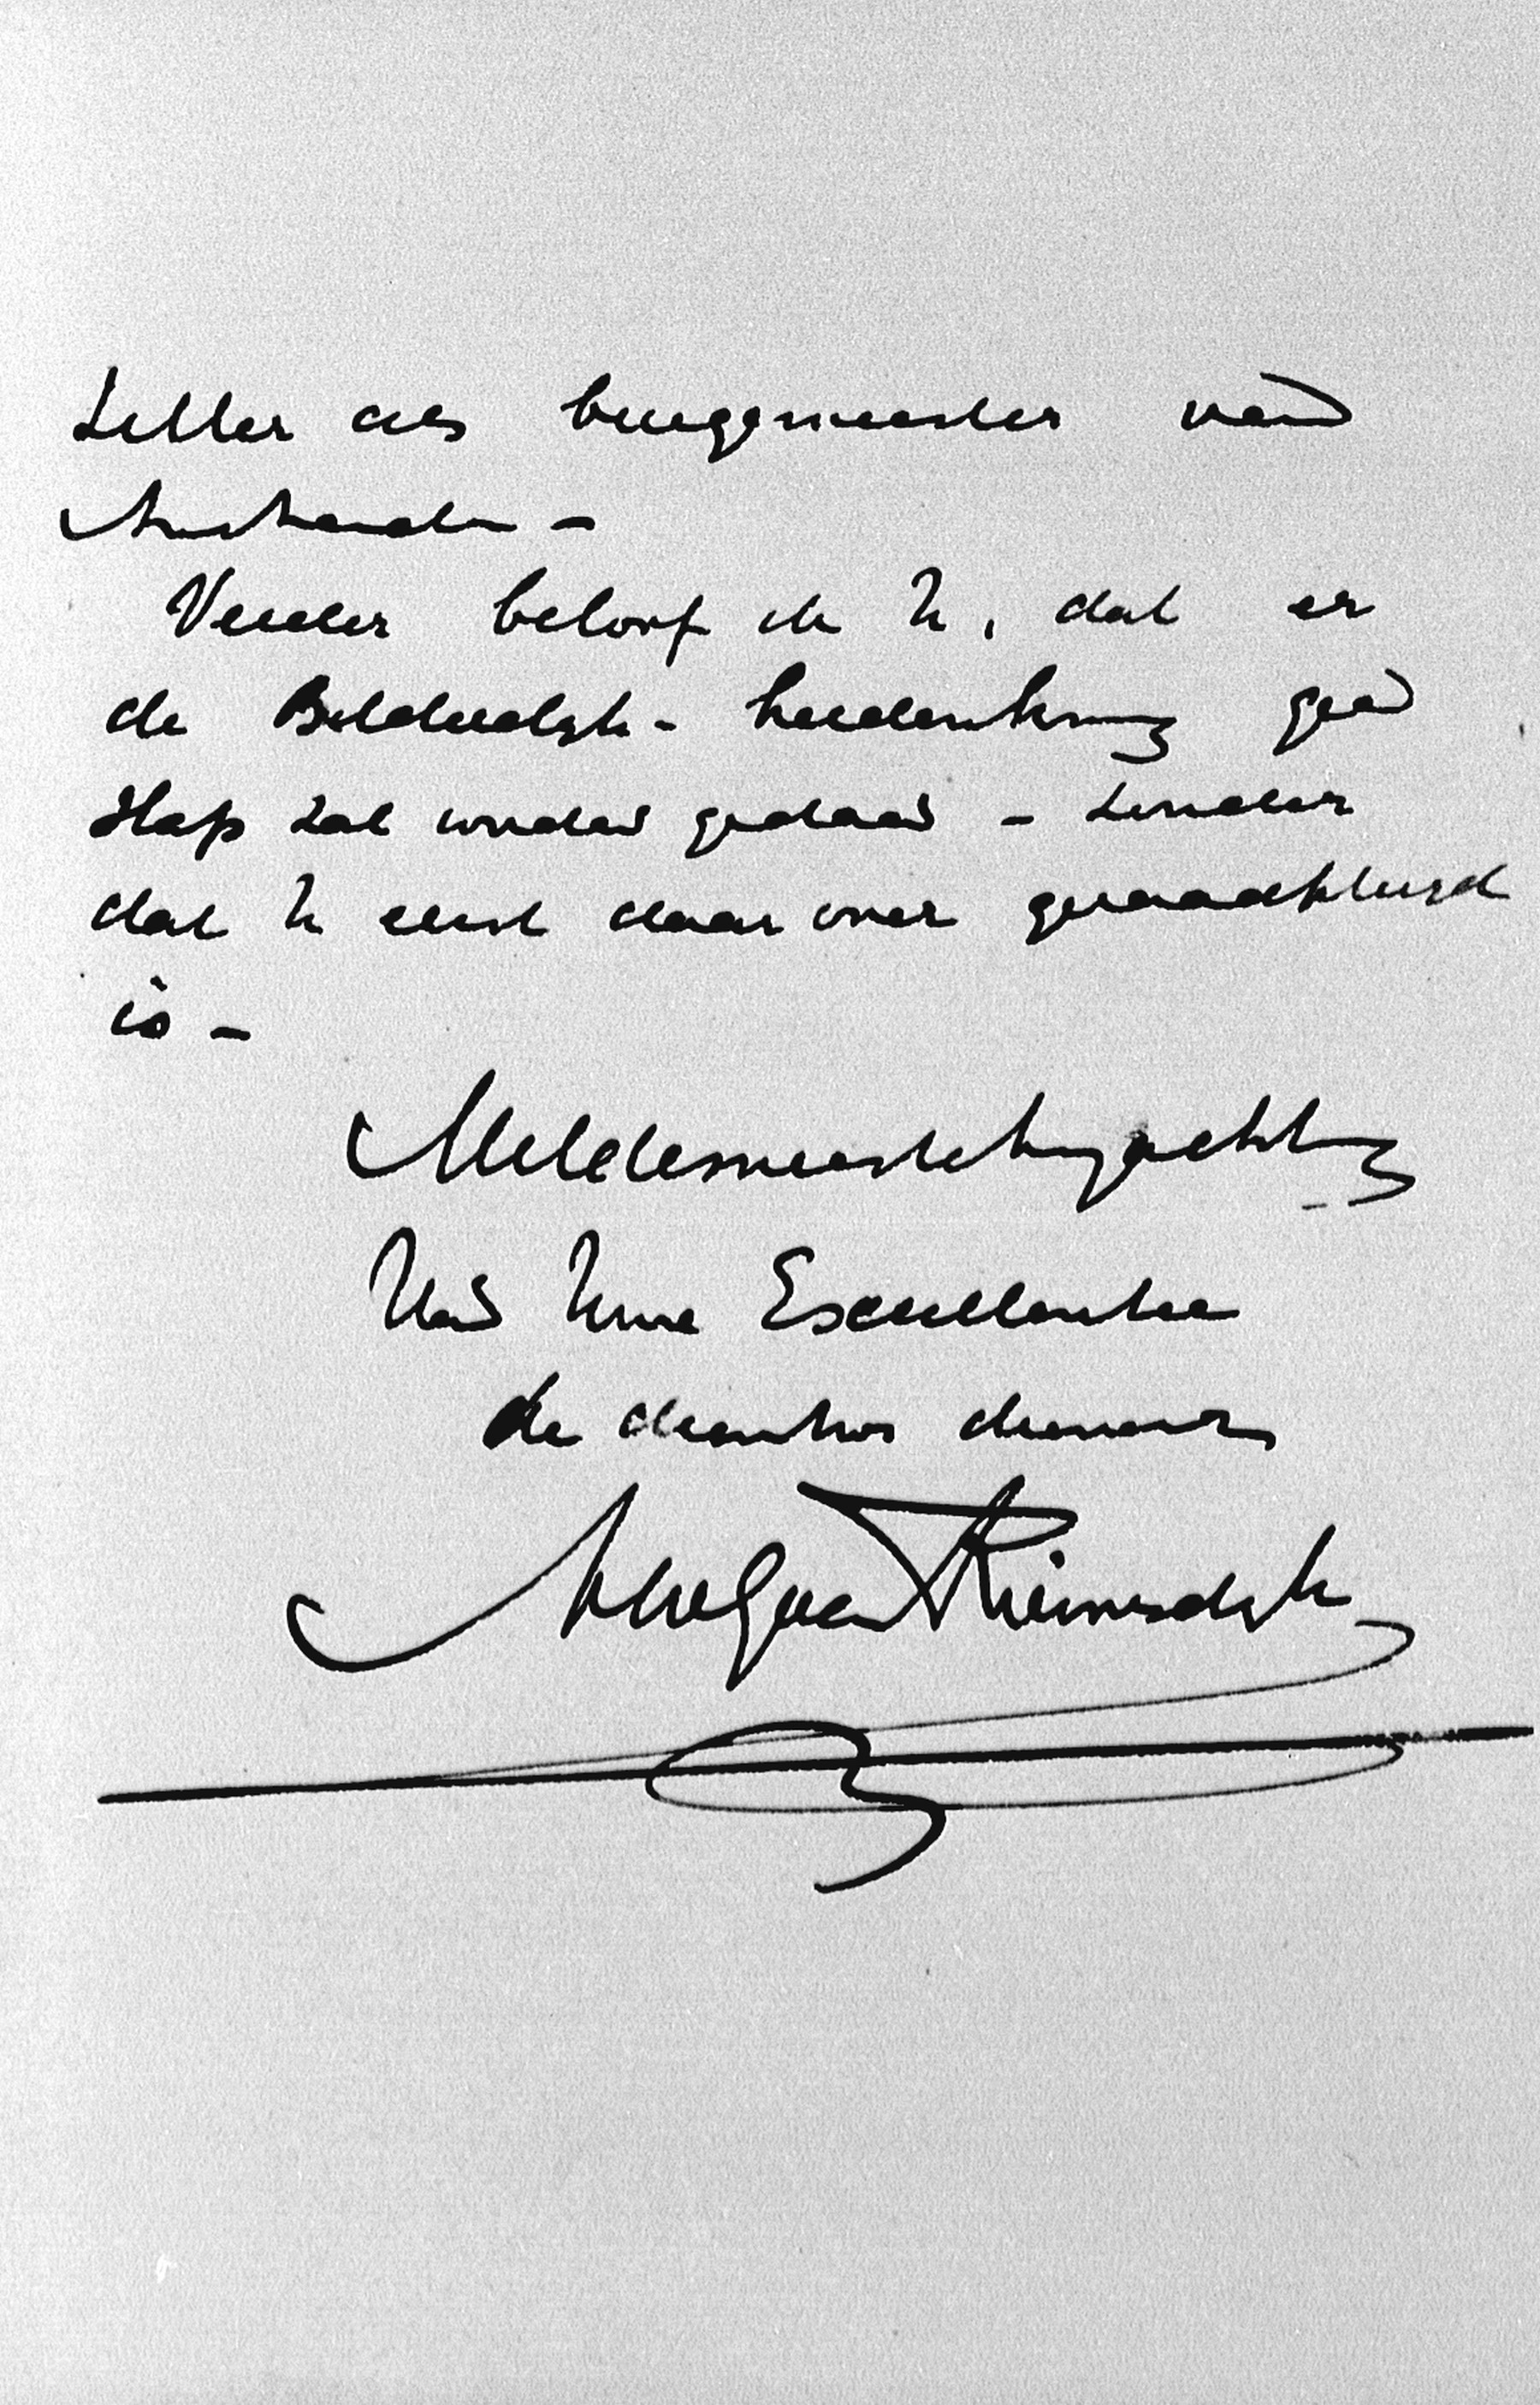 zitter als burgemeester van
Amsterdam -
Verder beloof ik U, dat er
de Bilderdijk-herdenking geen
stap zal worden gedaan - zonder
dat U eerst daarover geraadpleegd
is -
Met de meeste hoogachting
Van Uwe Excellentie
de dienstw. dienaar
van Riemsdijk